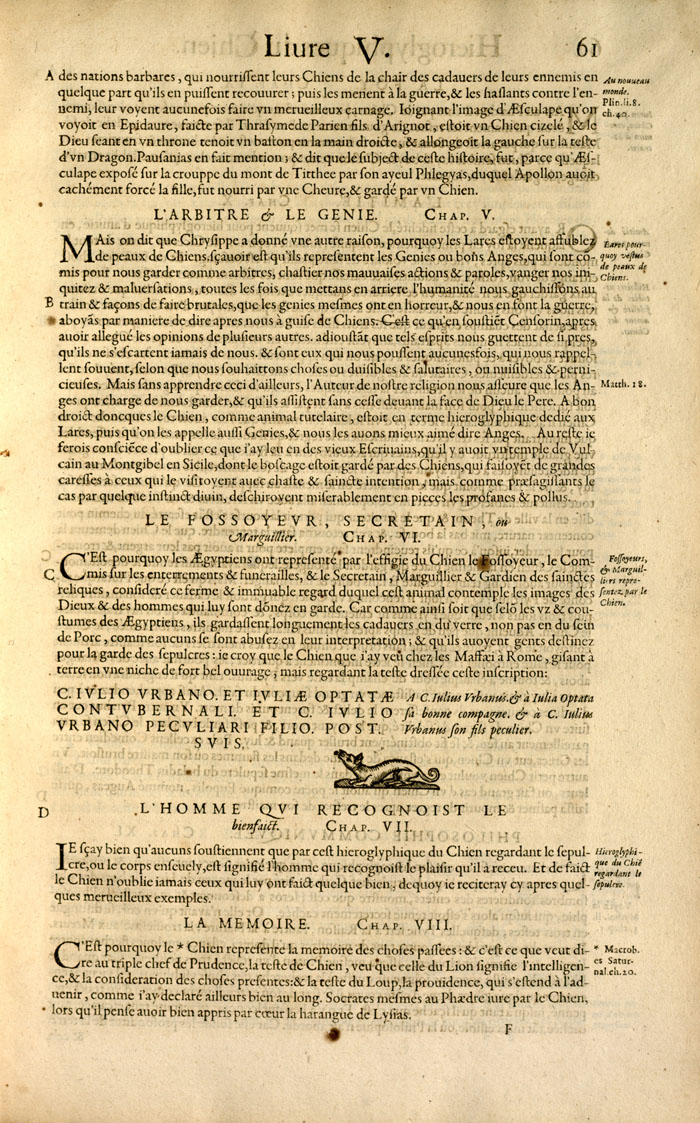 Liure V. 61
A des nations barbares, qui nourriſſent leurs Chiens de la chair des cadauers de leurs ennemis en
quelque part qu'ils en puiſſent recouurer; puis les menent à la guerre, & les haſlants contre l'en-
nemi, leur voyent aucunefois faire vn merueilleux carnage. Ioignant l'image d'Æſculape qu'on
voyoit en Epidaure, faicte par Thraſymede Parien fils d'Arignot, eſtoit vn Chien cizelé, & le
Dieu ſeant en vn throne tenoit vn baſton en la main droicte, & allongeoit la gauche ſur la teſte
d'vn Dragon. Pauſanias en fait mention; & dit que le ſubject de ceſte hiſtoire, fut, parce qu'Æſ-
culape expoſé sur la crouppe du mont de Titthee par ſon ayeul Phlegyas, duquel Apollon auoit
cachément forcé la fille, fut nourri par vne Cheure, & gardé par vn Chien.
Au nouueau
monde.
Plin. li. 8.
ch. 40.
L'ARBITRE & LE GENIE. CHAP. V.
MAis on dit que Chryſippe a donné vne autre raiſon, pourquoy les Lares eſtoyent affublez
de peaux de Chiens, ſçauoir eſt qu'ils repreſentent les Genies ou bons Anges, qui ſont cõ-
mis pour nous garder comme arbitres, chaſtier nos mauuaiſes actions & paroles, vanger nos ini-
quitez & maluerſations, toutes les fois que mettans en arriere l'humanité nous gauchiſſons au
B train & façons de faire brutales, que les genies meſmes ont en horreur, & nous en font la guerre,
aboyãs par maniere de dire apres nous à guiſe de Chiens. C'eſt ce qu'en ſouſtiẽt Cenſorin, apres
auoir allegué les opinions de pluſieurs autres. adiouſtãt que tels eſprits nous guettent de ſi pres,
qu'ils ne s'eſcartent iamais de nous. & ſont eux qui nous pouſſent aucunesfois, qui nous rappel-
lent ſouuent, ſelon que nous ſouhaittons choſes ou duiſibles & ſalutaires, ou nuiſibles & perni-
cieuſes. Mais ſans apprendre ceci d'ailleurs, l'Auteur de noſtre religion nous aſſeure que les An-
ges ont charge de nous garder, & qu'ils aſſiſtent ſans ceſſe deuant la face de Dieu le Pere. A bon
droict doncques le Chien, comme animal tutelaire, eſtoit en terme hieroglyphique dedié aux
Lares, puis qu'on les appelle auſſi Genies, & nous les auons mieux aimé dire Anges. Au reſte ie
ferois conſciẽce d'oublier ce que i'ay leu en des vieux Eſcriuains, qu'il y auoit vn temple de Vul-
cain au Montgibel en Sicile, dont le boſcage eſtoit gardé par des Chiens, qui faiſoyẽt de grandes
careſſes à ceux qui le viſitoyent auec chaſte & ſaincte intention, mais comme præſagiſſants le
cas par quelque inſtinct diuin, deſchiroyent miſerablement en pieces les profanes & pollus.
Lares pour-
quoy veſtus
de peaux de
Chiens.
Matth. 18.
LE FOSSOYEVR, SECRETAIN, ou
Marguillier. CHAP. VI.
C'Eſt pourquoy les Ægyptiens ont repreſenté par l'effigie du Chien le Foſſoyeur, le Com-
C mis ſur les enterrements & funerailles, & le Secretain, Marguillier & Gardien des ſainctes
reliques, conſideré ce ferme & immuable regard duquel ceſt animal contemple les images des
Dieux & des hommes qui luy ſont dõnez en garde. Car comme ainſi ſoit que ſelõ les vz & cou-
ſtumes des Ægyptiens, ils gardaſſent longuement les cadauers en du verre, non pas en du ſein
de Porc, comme aucuns ſe ſont abuſez en leur interpretation; & qu'ils auoyent gents deſtinez
pour la garde des ſepulcres: ie croy que le Chien que i'ay veu chez les Maffæi à Rome, giſant à
terre en vne niche de fort bel ouurage, mais regardant la teſte dreſſée ceſte inſcription:
Foſſoyeurs,
& Marguil-
liers repre-
ſentez par le
Chien.
C. IVLIO VRBANO. ET IVLIÆ OPTATÆ
CONTVBERNALI. ET C. IVLIO
VRBANO PECVLIARI FILIO. POST.
SVIS.
A C. Iulius Vrbanus. & à Iulia Optata
ſa bonne compagne. & à C. Iulius
Vrbanus ſon fils peculier.
D L'HOMME QVI RECOGNOIST LE
bienfaict. CHAP. VII.
IE ſçay bien qu'aucuns ſouſtiennent que par ceſt hieroglyphique du Chien regardant le ſepul-
cre, ou le corps enſeuely, eſt ſignifié l'homme qui recognoiſt le plaiſir qu'il a receu. Et de faict
le Chien n'oublie iamais ceux qui luy ont faict quelque bien, dequoy ie reciteray cy apres quel-
ques merueilleux exemples.
Hieroglyphi-
que du Chiẽ
regardant le
ſepulcre.
LA MEMOIRE. CHAP. VIII.
C'Eſt pourquoy le * Chien repreſente la memoire des choſes paſſees: & c'eſt ce que veut di-
re au triple chef de Prudence, la teſte de Chien, veu que celle du Lion ſignifie l'intelligen-
ce, & la conſideration des choſes preſentes: & la teſte du Loup, la prouidence, qui s'eſtend à l'ad-
uenir, comme i'ay declaré ailleurs bien au long. Socrates meſmes au Phædre iure par le Chien,
lors qu'il penſe auoir bien appris par cœur la harangue de Lyſias.
* Macrob.
es Satur-
nal. ch. 20.
F